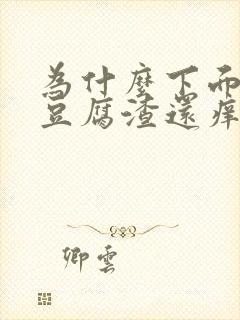 為什麼下面
豆腐渣還痒
卿雲